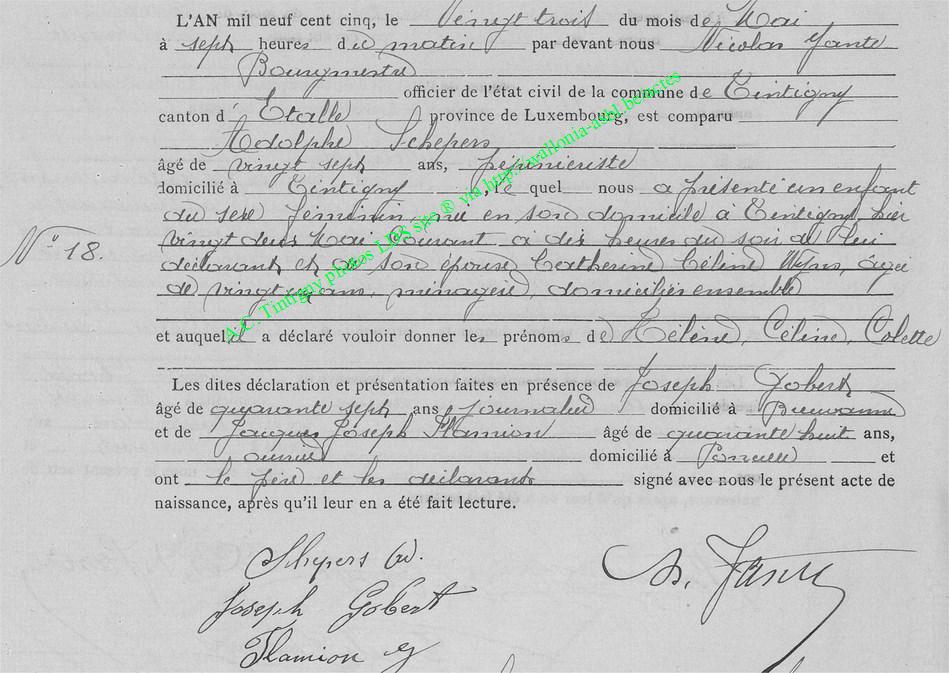 L'AN mil neuf cent cinq, le Vingt trois du mois de Mai
à sept heures du matin par devant nous Nicolas Jante
Bourgmestre
officier de l'état civil de la commune de Tintigny
canton d'Etalle province de Luxembourg, est comparu
Adolphe Schepers
âgé de vingt sept ans, pépiniériste
domicilié à Tintigny, le quel nous a présenté un enfant
du sexe féminin, né en son domicile à Tintigny, hier
N° 18.
vingt deux Mai courant à dix heures du soir de lui
déclarant et de son épouse Catherine Céline, âgée
de vingt ans, ménagère, domiciliés ensemble
et auquel il a déclaré vouloir donner les prénoms de Hélène, Céline, Colette
Les dites déclaration et présentation faites en présence de Joseph Gobert
âgé de quarante sept ans journalier domicilié à Breuvanne
et de Jacques Joseph Flamion âgé de quarante huit ans,
ouvrier domicilié à Poncelle et
ont le père et les déclarants signé avec nous le présent acte de
naissance, après qu'il leur en a été fait lecture.
A.C. Tintigny photos LDS site ® via http://wallonia-asbl.be/actes
Shepers
Joseph Gobert
Flamion